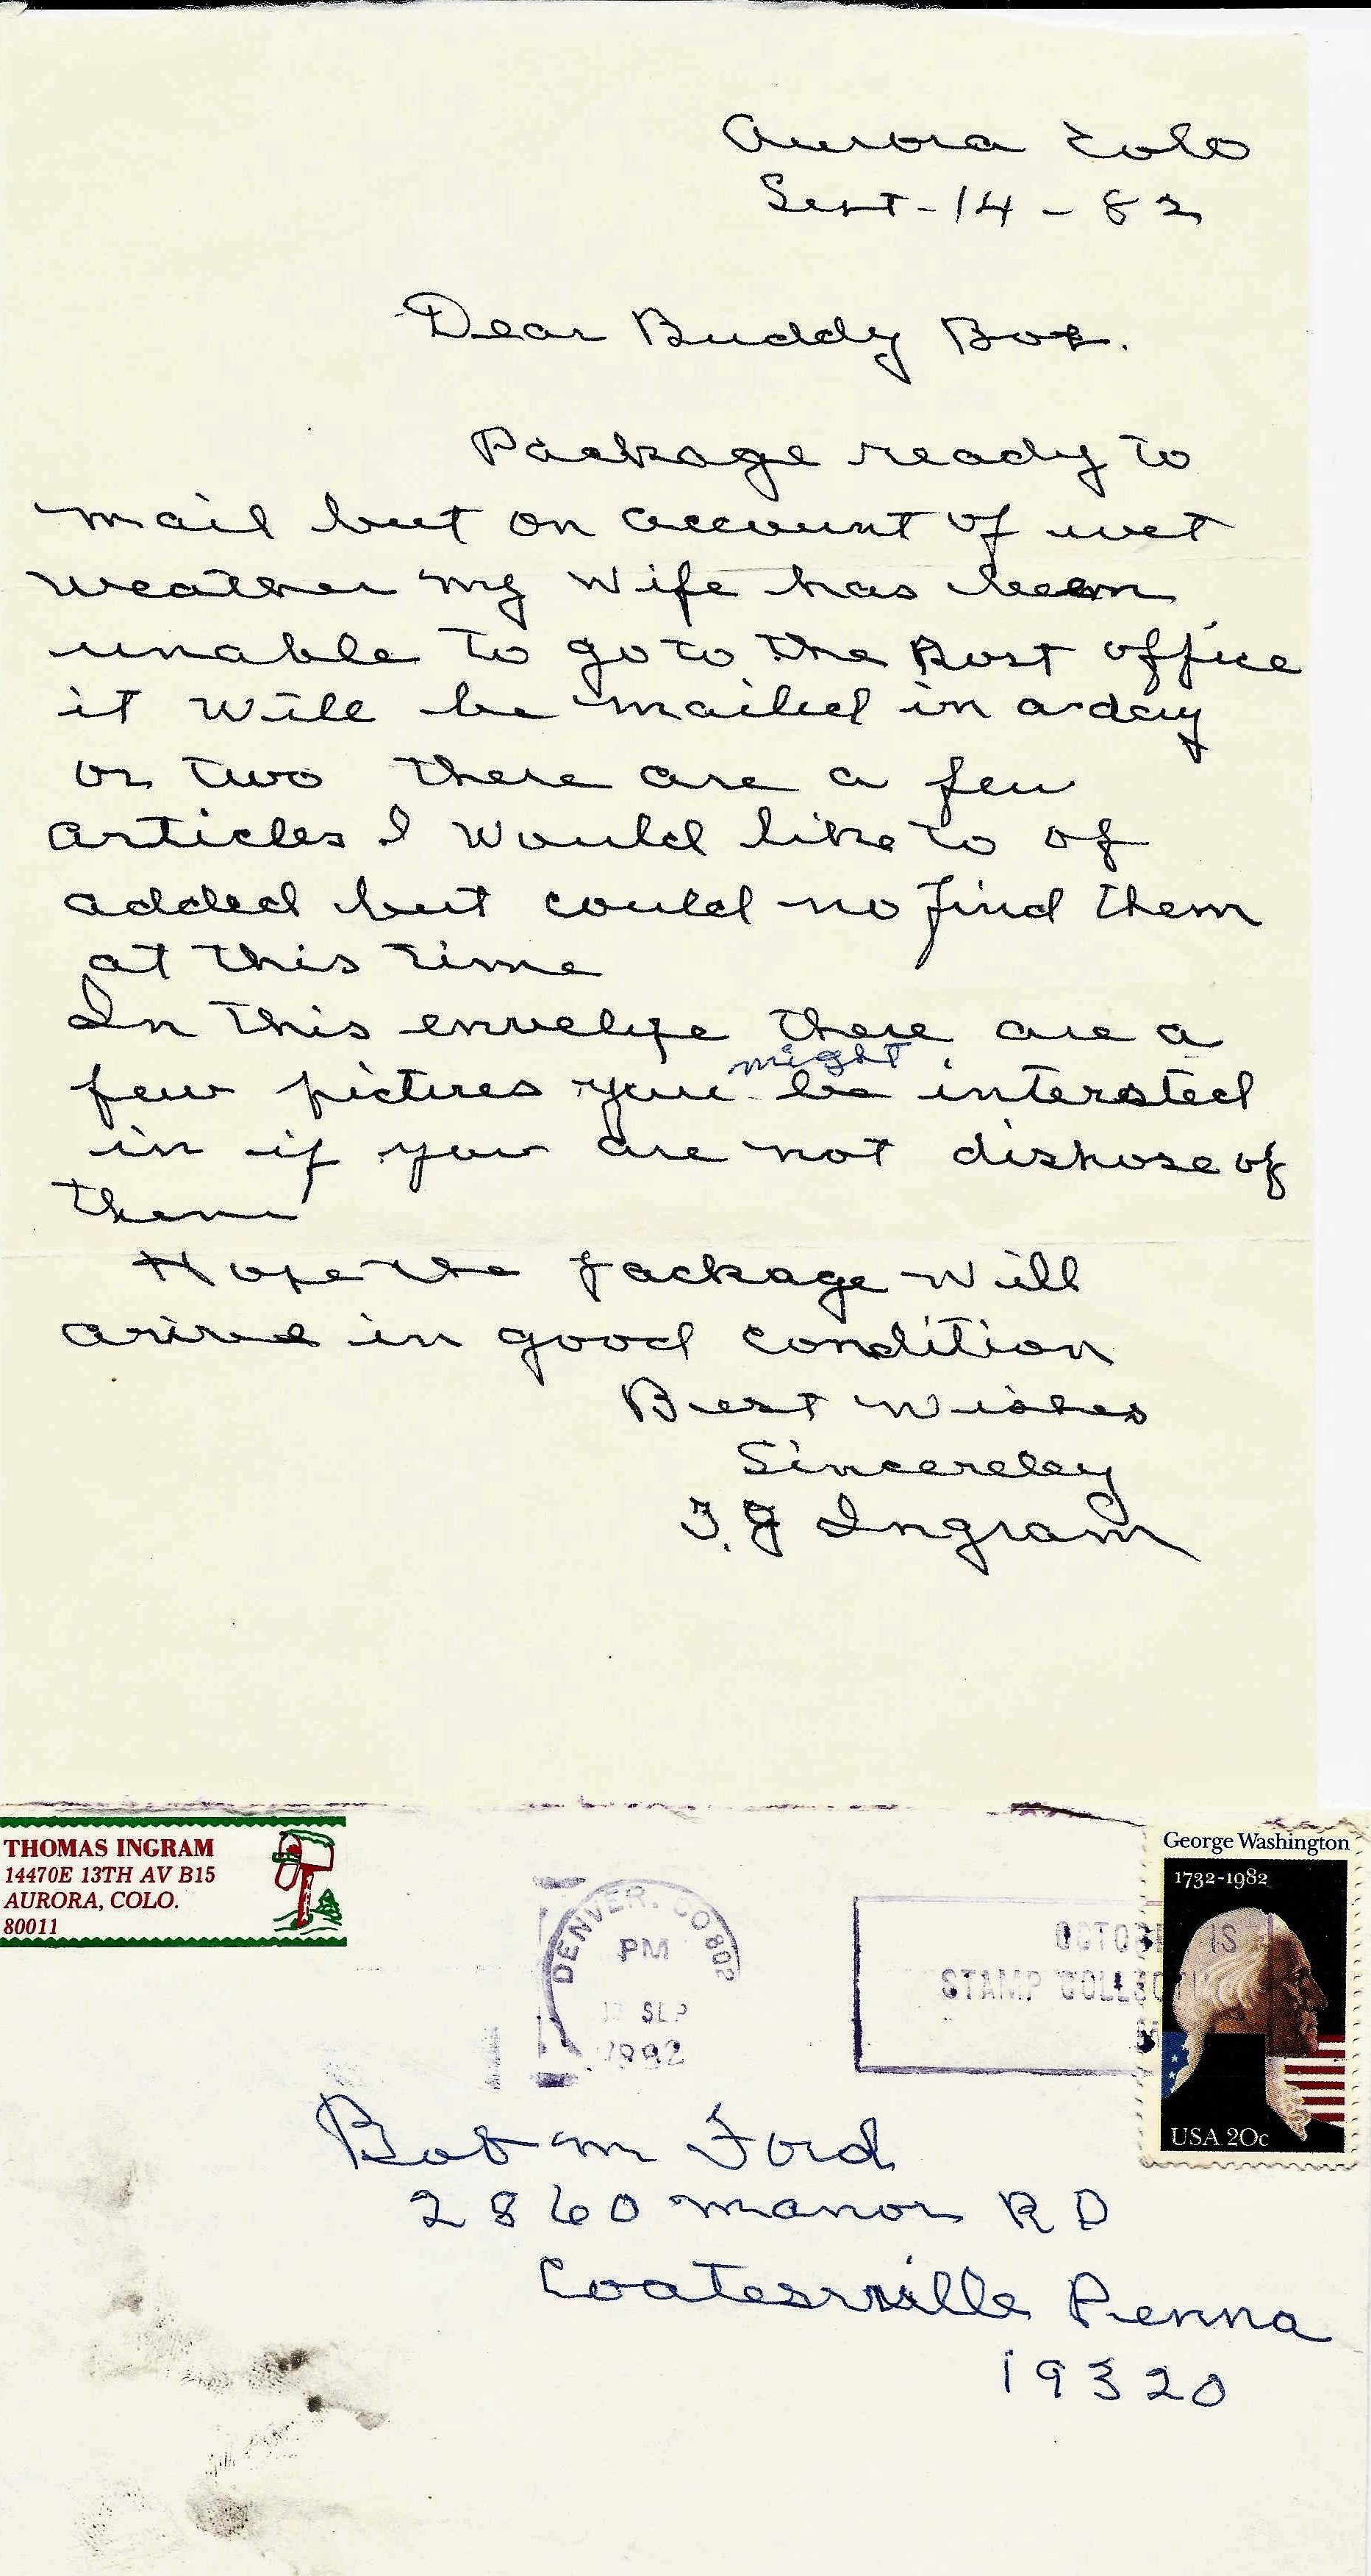 Aurora Colo
Sept-14-82
Dear Buddy Bob.
Package ready to
mail but on account of wet
weather my wife has been
unable to go to the Post office
it will be mailed in a day
or two there are a few
articles I would like to of
added but could no find them
at this time
In this envelope there are a
might
few pictures you be intersted
in if you are not dispose of
them
Hope the package will
arive in good condition
Best wishes
Sincereley
T.J Ingram
THOMAS INGRAM
14470E 13TH AV B15
AURORA, COLO.
80011
George Washington
1732-1982
USA 20c
DENVER, CO 802
PM
SEP
1982
IS
STAMP
Bob M Ford
2860 Manor RD
Coatesville Penna
19320